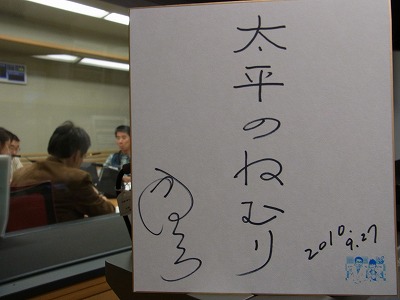 太平のねむり
2010
9.27